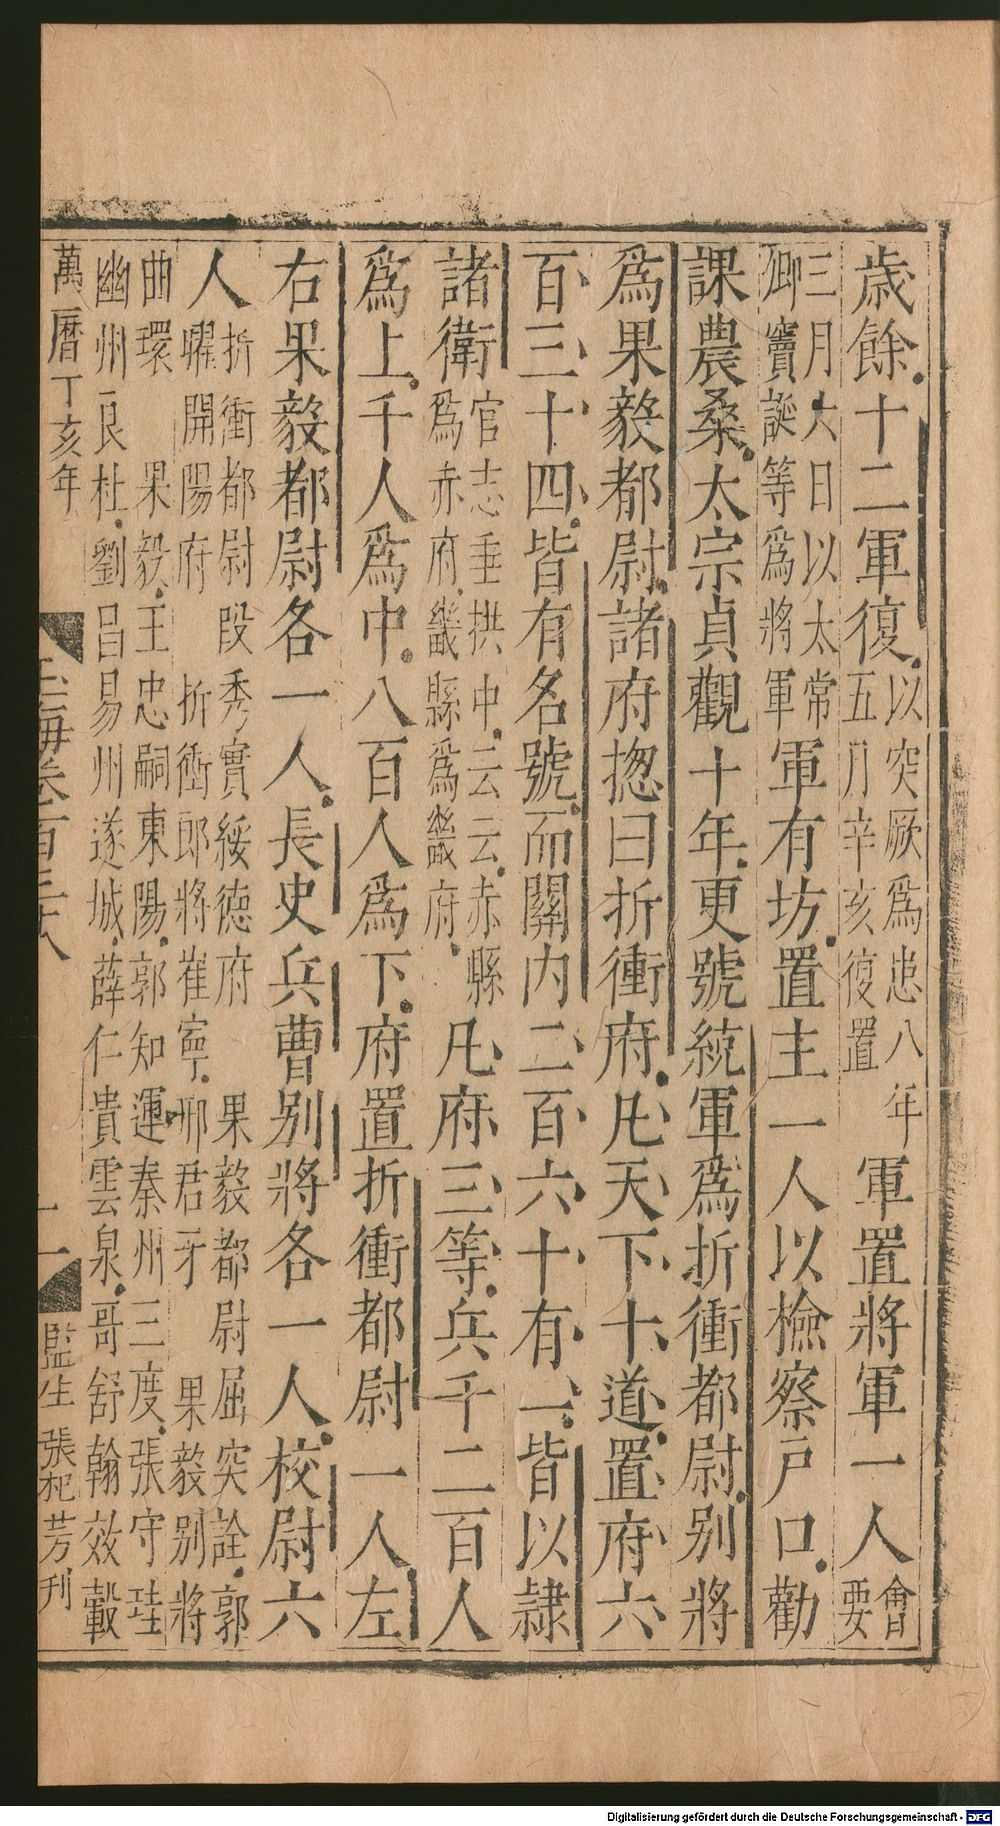 歲餘十二軍復以突厥爲患八年
五月辛亥復置
軍置將軍一人會
要
三月六日以太常
卿竇誕等爲將軍
軍有坊置主一人以檢察户口勸
課農桑太宗貞觀十年更號統軍爲折衝都尉别將
爲果毅都尉諸府揔曰折衝府凡天下十道置府六
百三十四皆有名號而關内二百六十有一皆以隷
諸衛官志垂拱中云云赤縣
爲赤府畿縣爲畿府
凡府三等兵千二百人
爲上千人爲中八百人爲下府置折衝都尉一人左
右果毅都尉各一人長史兵曹别將各一人校尉六
人折衝都尉 段秀實綏德府 果毅都尉屈突詮郭
曜開陽府 折衝郎將崔寧邢君牙 果毅别將
曲環 果毅王忠嗣東陽郭知運秦州三度張守珪
幽州良杜劉昌易州遂城薛仁貴雲泉哥舒翰效轂
萬曆丁亥年 玉海卷一百三十八 十一 監生張杞芳刊
Digitalisierung gefördert durch die Deutsche Forschungsgemeinschaft - DFG